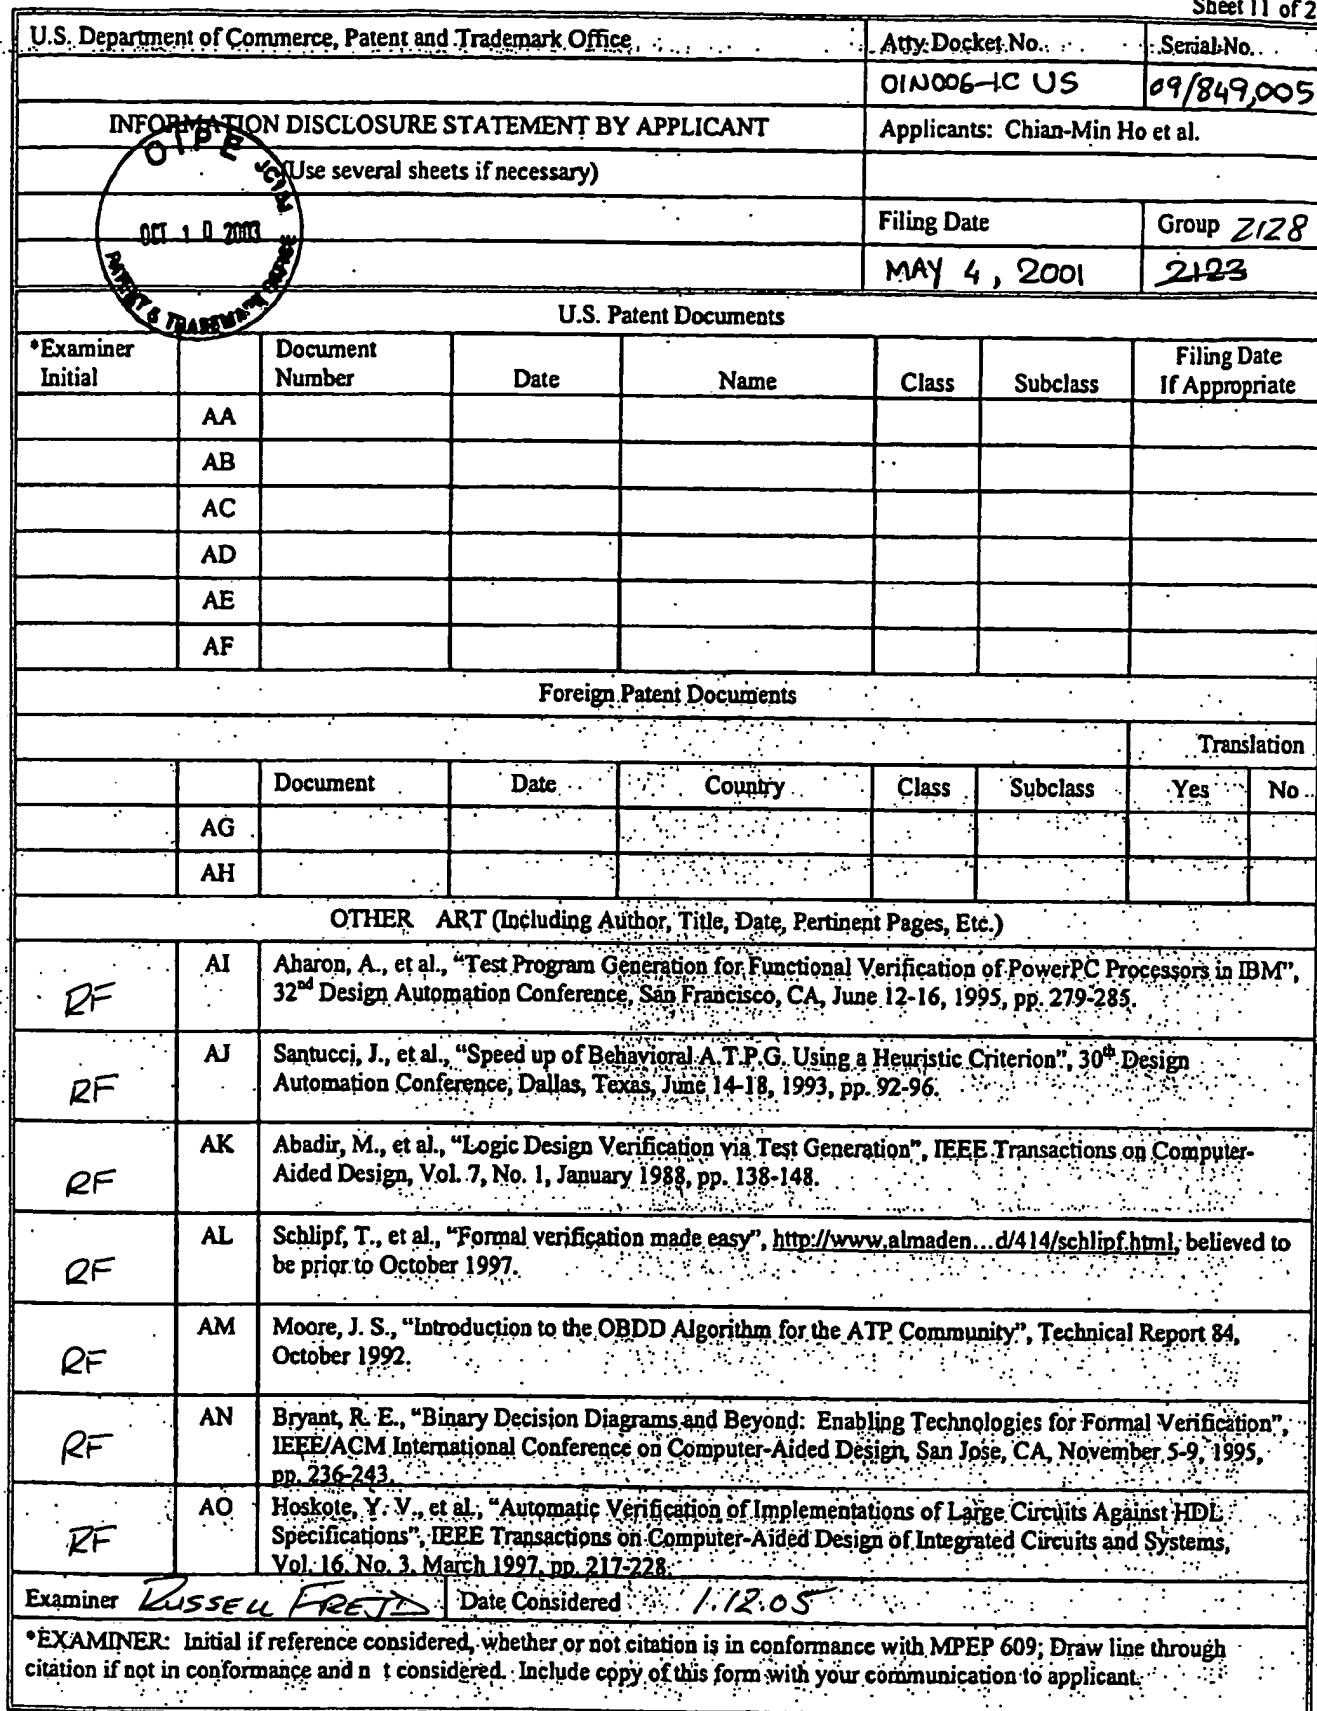 Sheet 11 of 2
U.S. Department of Commerce, Patent and Trademark Office
Atty Docket No.
Serial No.
01N006-1C US
09/849,005
INFORMATION DISCLOSURE STATEMENT BY APPLICANT
Applicants: Chian-Min Ho et al.
(Use several sheets if necessary)
OIPE
OCT 10 2003
PATENT & TRADEMARK OFFICE
Filing Date
Group 2128
MAY 4, 2001
2123
U.S. Patent Documents
*Examiner Initial
Document Number
Date
Name
Class
Subclass
Filing Date If Appropriate
AA
AB
AC
AD
AE
AF
Foreign Patent Documents
Translation
Document
Date
Country
Class
Subclass
Yes
No
AG
AH
OTHER ART (Including Author, Title, Date, Pertinent Pages, Etc.)
RF
AI
Aharon, A., et al., “Test Program Generation for Functional Verification of PowerPC Processors in IBM”,
32nd Design Automation Conference, San Francisco, CA, June 12-16, 1995, pp. 279-285.
RF
AJ
Santucci, J., et al., “Speed up of Behavioral A.T.P.G. Using a Heuristic Criterion”, 30th Design
Automation Conference, Dallas, Texas, June 14-18, 1993, pp. 92-96.
RF
AK
Abadir, M., et al., “Logic Design Verification via Test Generation”, IEEE Transactions on Computer-
Aided Design, Vol. 7, No. 1, January 1988, pp. 138-148.
RF
AL
Schlipf, T., et al., “Formal verification made easy”, http://www.almaden...d/414/schlipf.html, believed to
be prior to October 1997.
RF
AM
Moore, J. S., “Introduction to the OBDD Algorithm for the ATP Community”, Technical Report 84,
October 1992.
RF
AN
Bryant, R. E., “Binary Decision Diagrams and Beyond: Enabling Technologies for Formal Verification”,
IEEE/ACM International Conference on Computer-Aided Design, San Jose, CA, November 5-9, 1995,
pp. 236-243.
RF
AO
Hoskote, Y. V., et al., “Automatic Verification of Implementations of Large Circuits Against HDL
Specifications”, IEEE Transactions on Computer-Aided Design of Integrated Circuits and Systems,
Vol. 16, No. 3, March 1997, pp. 217-228.
Examiner RUSSELL FREJD
Date Considered 1.12.05
*EXAMINER: Initial if reference considered, whether or not citation is in conformance with MPEP 609; Draw line through
citation if not in conformance and n t considered. Include copy of this form with your communication to applicant.